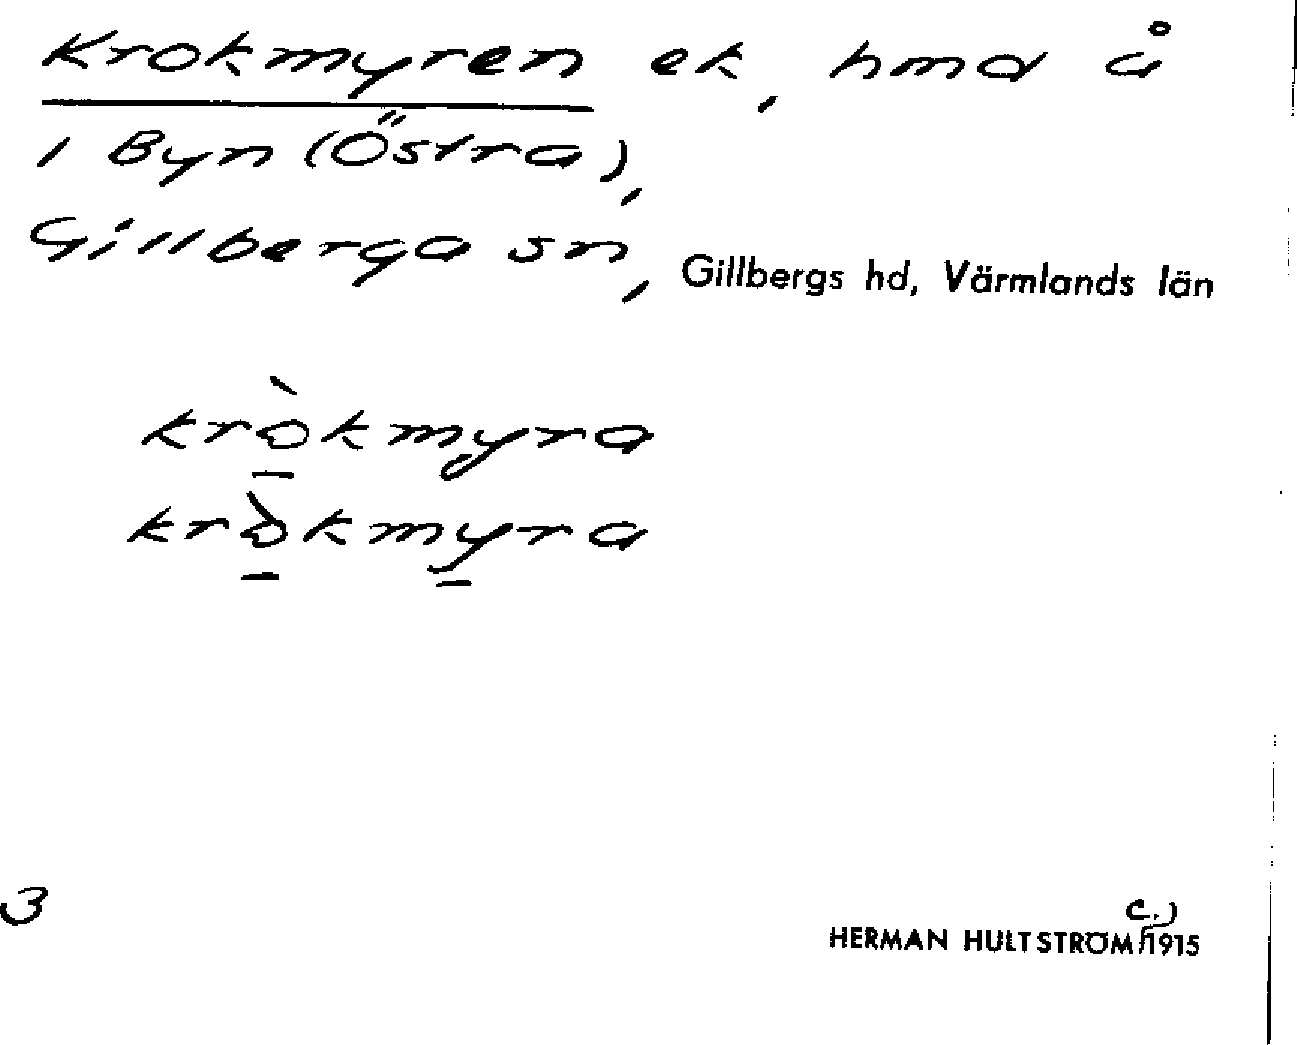 Krokmyren ek, hmd å
1 Byn (Östra),
Gillberga sn, Gillbergs hd, Värmlands län
kròkmyra
kròkmyra
3
c.)
HERMAN HULTSTRÖM 1915